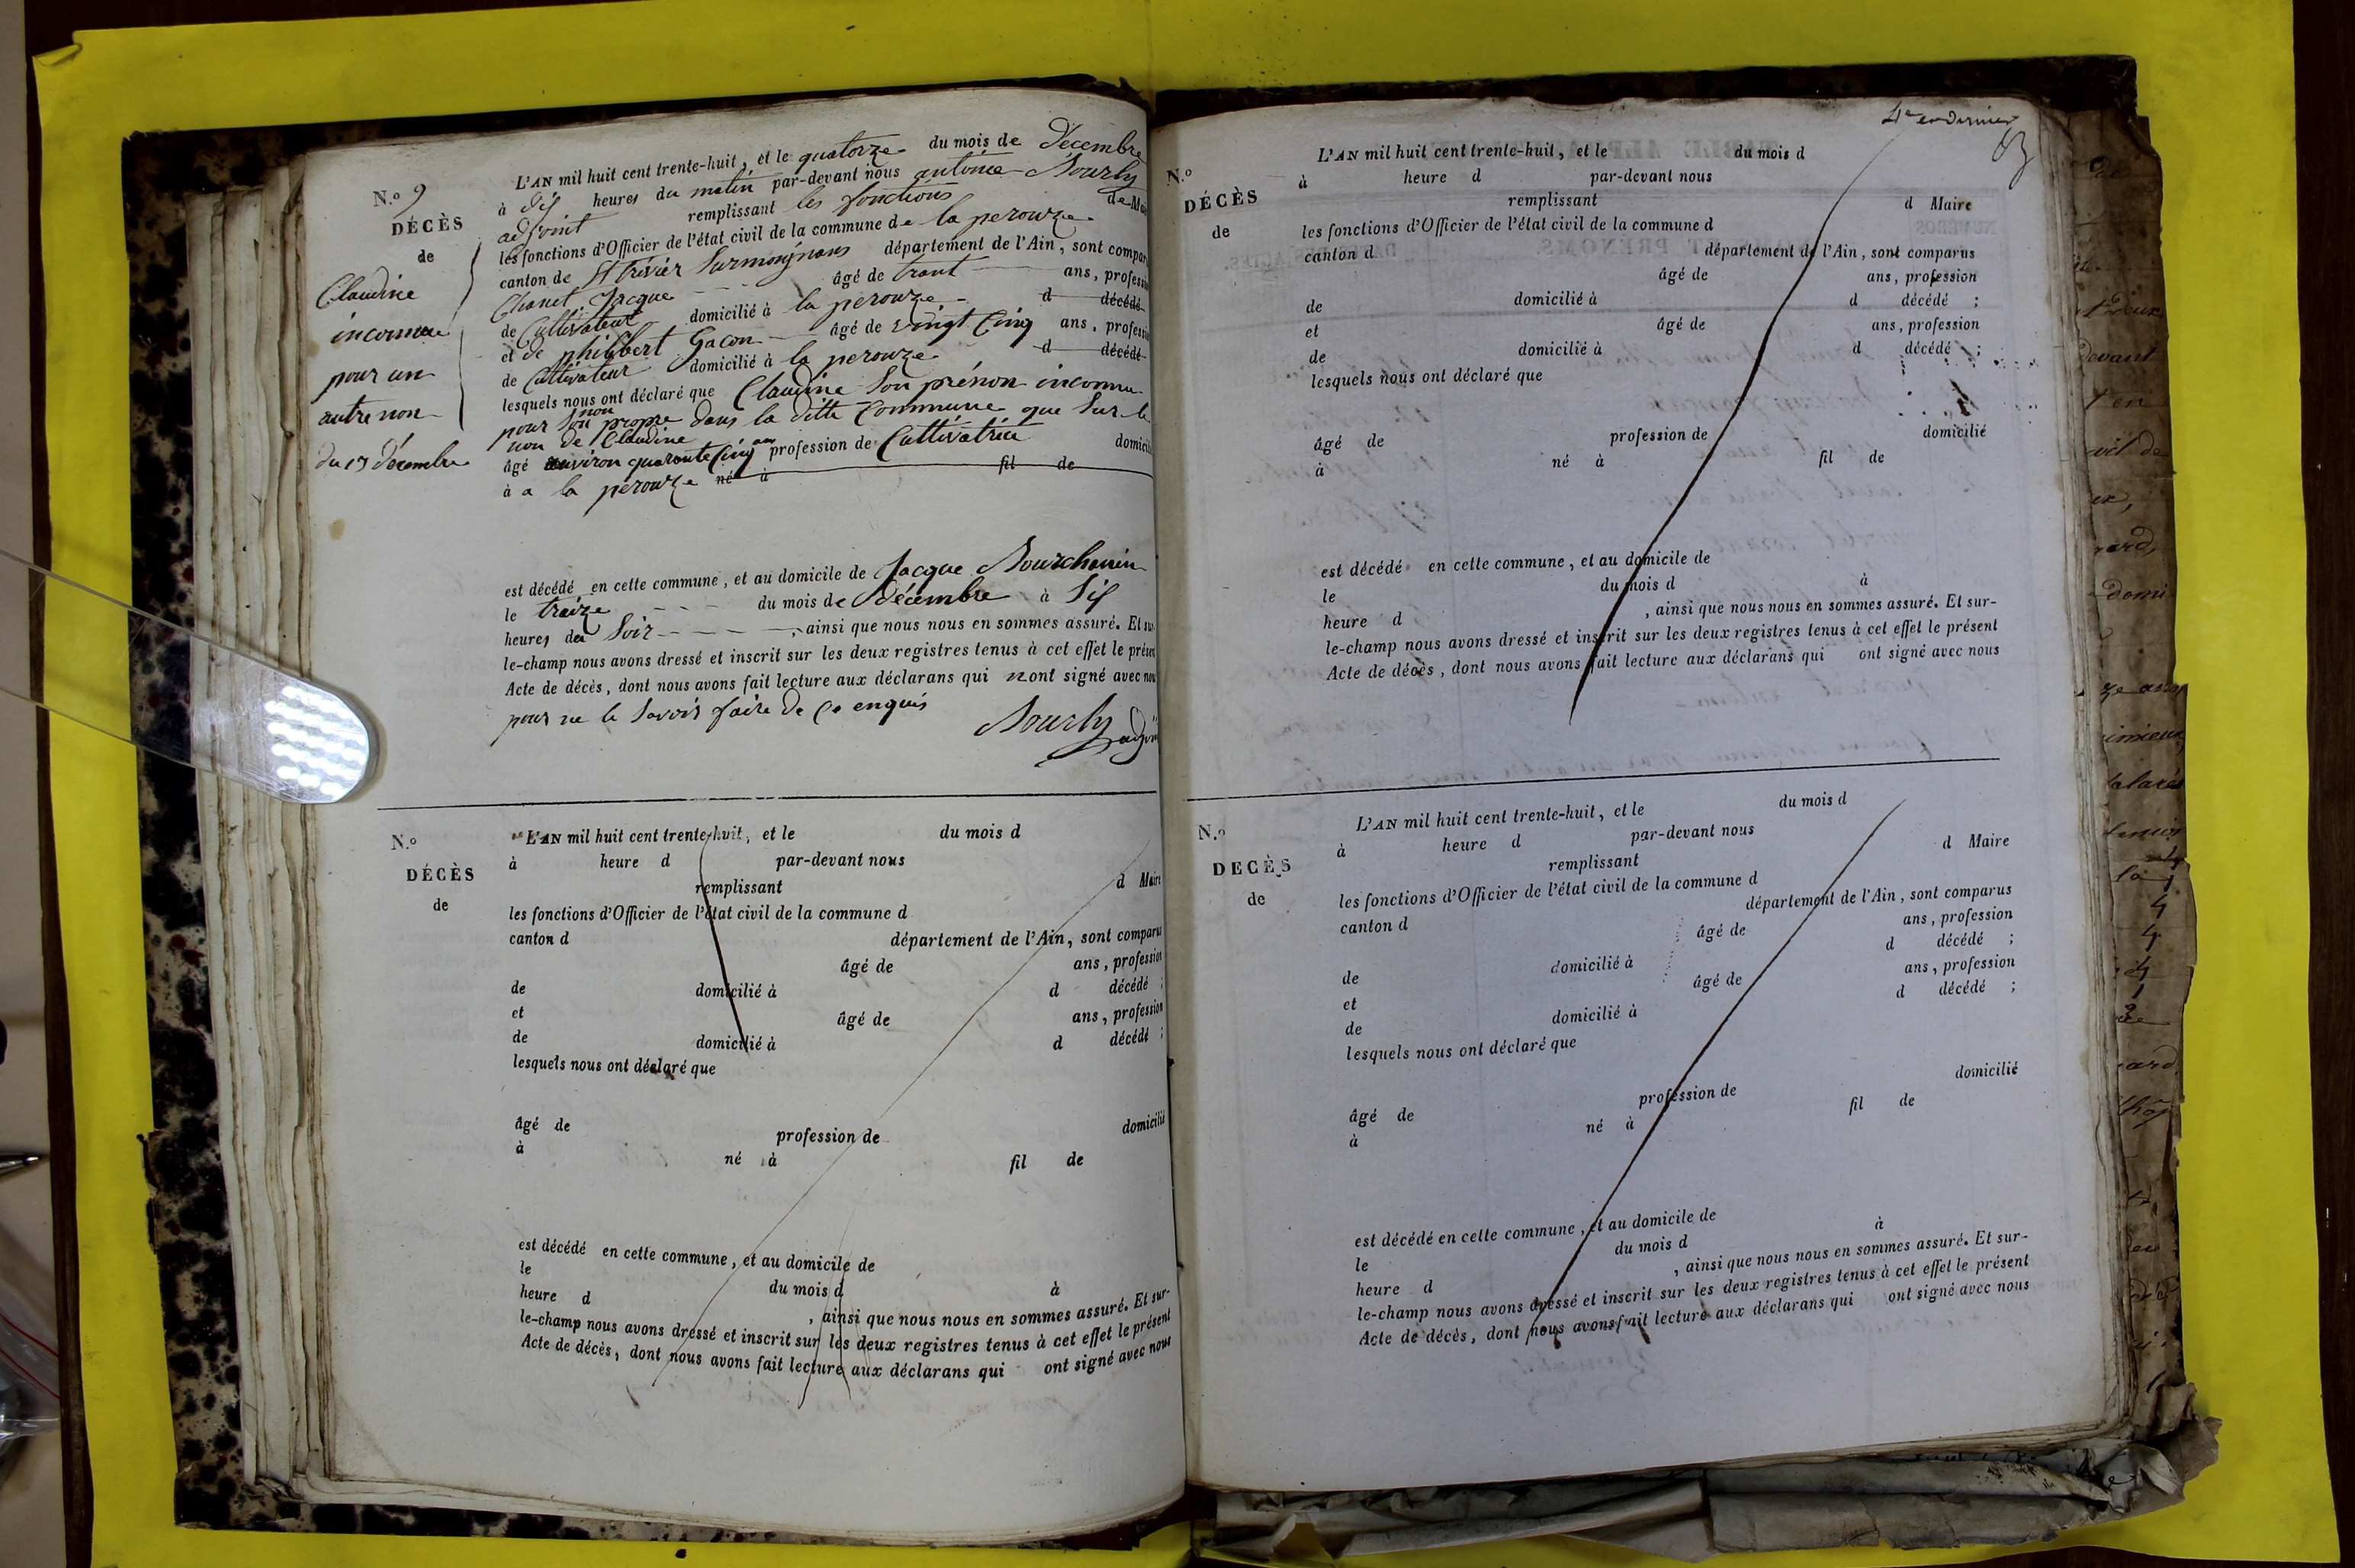 N.o 9
DÉCÈS
de
Claudine
inconnue
pour un
autre non
du 13 décembre
L'AN mil huit cent trente-huit, et le quatorze du mois de Décembre
à dix heures du matin par-devant nous antoine Bourly
adjoint remplissant les fonctions de Maire
les fonctions d'Officier de l'état civil de la commune de la perouze
canton de St trivier Surmoignans département de l'Ain, sont comparus
Chanet Jacque âgé de trant ans, profession
de Cultivateur domicilié à la perouze d décédé
et de philibert Gacon âgé de vingt Cinq ans, profession
de Cultivateur domicilié à la perouze d décédé
lesquels nous ont déclaré que Claudine Son prénon inconnu
pour Son non propre dans la ditte Commune que Sur le
non de Claudine
âgé environ quarante Cinq ans profession de Cultivatrice domicilié
à a la perouze né à fil de
est décédé en cette commune, et au domicile de Jacque Bourchanin
le treize du mois de décembre à Six
heures du Soir, ainsi que nous nous en sommes assuré. Et sur-
le-champ nous avons dressé et inscrit sur les deux registres tenus à cet effet le présent
Acte de décès, dont nous avons fait lecture aux déclarans qui nont signé avec nous
pour ne le Savoir faire de Ce enquis
Bourly adjoint
N.o
DÉCÈS
de
L'AN mil huit cent trente-huit, et le du mois d
à heure d par-devant nous
remplissant d Maire
les fonctions d'Officier de l'état civil de la commune d
canton d département de l'Ain, sont comparus
âgé de ans, profession
de domicilié à d décédé ;
et âgé de ans, profession
de domicilié à d décédé ;
lesquels nous ont déclaré que
âgé de profession de domicilié
à né à fil de
est décédé en cette commune, et au domicile de
le du mois d à
heure d , ainsi que nous nous en sommes assuré. Et sur-
le-champ nous avons dressé et inscrit sur les deux registres tenus à cet effet le présent
Acte de décès, dont nous avons fait lecture aux déclarans qui ont signé avec nous
4e et dernier
N.o
DÉCÈS
de
L'AN mil huit cent trente-huit, et le du mois d
à heure d par-devant nous
remplissant d Maire
les fonctions d'Officier de l'état civil de la commune d
canton d département de l'Ain, sont comparus
âgé de ans, profession
de domicilié à d décédé ;
et âgé de ans, profession
de domicilié à d décédé ;
lesquels nous ont déclaré que
âgé de profession de domicilié
à né à fil de
est décédé en cette commune, et au domicile de
le du mois d à
heure d , ainsi que nous nous en sommes assuré. Et sur-
le-champ nous avons dressé et inscrit sur les deux registres tenus à cet effet le présent
Acte de décès, dont nous avons fait lecture aux déclarans qui ont signé avec nous
N.o
DECÈS
de
L'AN mil huit cent trente-huit, et le du mois d
à heure d par-devant nous
remplissant d Maire
les fonctions d'Officier de l'état civil de la commune d
canton d département de l'Ain, sont comparus
âgé de ans, profession
de domicilié à d décédé ;
et âgé de ans, profession
de domicilié à d décédé ;
lesquels nous ont déclaré que
âgé de profession de domicilié
à né à fil de
est décédé en cette commune, et au domicile de
le du mois d à
heure d , ainsi que nous nous en sommes assuré. Et sur-
le-champ nous avons dressé et inscrit sur les deux registres tenus à cet effet le présent
Acte de décès, dont nous avons fait lecture aux déclarans qui ont signé avec nous